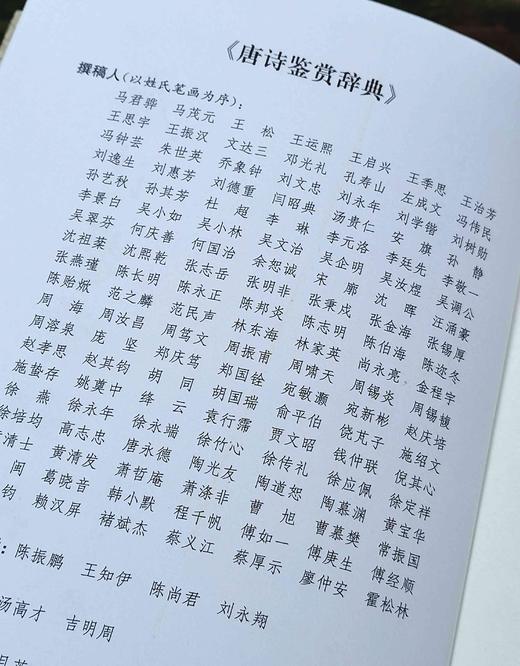 《唐诗鉴赏辞典》
撰稿人(以姓氏笔画为序):
马君骅 马茂元 王松 王运熙 王启兴 王季思 王治芳
王思宇 王振汉 文达三 邓光礼 孔寿山 左成文 冯伟民
冯钟芸 朱世英 乔象钟 刘文忠 刘永年 刘学锴 刘树勋
刘逸生 刘惠芳 刘德重 闫昭典 汤贵仁 安旗 孙静
孙艺秋 孙其芳 杜超 李琳 李元洛 李廷先 李敬一
李景白 吴小如 吴小林 吴文治 吴企明 吴汝煜 吴调公
吴翠芬 何庆善 何国治 余恕诚 宋廓 沈晖 汪涌豪
沈祖棻 沈熙乾 张志岳 张明非 张秉戍 张金海 张锡厚
张燕瑾 陈长明 陈永正 陈邦炎 陈志明 陈伯海 陈迩冬
陈贻焮 范之麟 范民声 林东海 林家英 尚永亮 金程宇
周海 周汝昌 周笃文 周振甫 周啸天 周锡炎 周锡
周溶泉 庞坚 郑庆笃 郑国铨 宛敏灏 宛新彬 赵庆培
赵孝思 赵其钧 胡同 胡国瑞 俞平伯 饶芃子 施绍文
施蛰存 姚奠中 绛云 袁行霈 贾文昭 钱仲联 倪其心
徐燕 徐永年 徐永端 徐竹心 徐传礼 徐应佩 徐定祥
徐培均 高志忠 唐永德 陶光友 陶道恕 陶慕渊 黄宝华
黄清士 黄清发 萧哲庵 萧涤非 曹旭 曹慕樊 常振国
闽 葛晓音 韩小默 程千帆 傅如一 傅庚生 傅经顺
钧 赖汉屏 褚斌杰 蔡义江 蔡厚示 廖仲安 霍松林
: 陈振鹏 王知伊 陈尚君 刘永翔
汤高才 吉明周